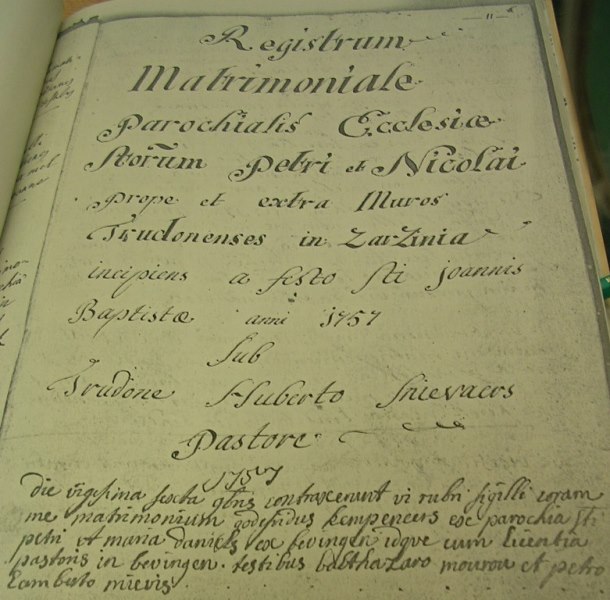 11
Registrum
Matrimoniale
Parochialis Ecclesiæ
Storum Petri et Nicolai
Prope et extra Muros
Trudonenses in Zarzinia
incipiens a festo sti joannis
Baptistæ anni 1757
sub
Trudone Huberto Snievaers
Pastore
1757
Die vigesima sexta contraxerunt vi rubri sigilli coram
me matrimonium godefridus kempeneers ex parochia sti
petri et maria daniels ex bevingen idque cum licentia
pastoris in bevingen. testibus balthazaro mourou et petro
Lamberto